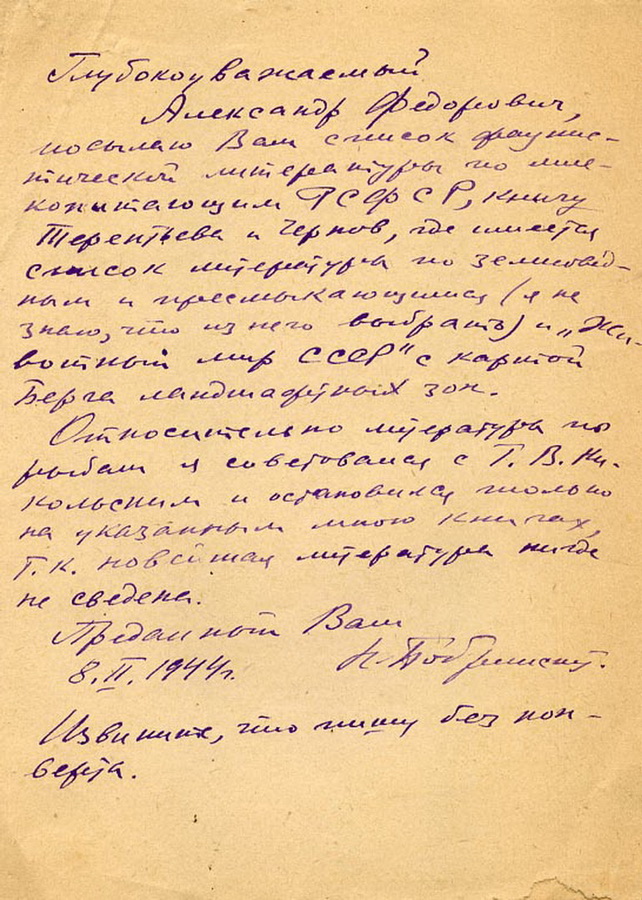 Глубокоуважаемый
Александр Федорович,
посылаю Вам список фаунис-
тической литературы по мле-
копитающим РСФСР, книгу
Терентьева и Чернов, где имеется
список литературы по земновод-
ным и пресмыкающимся (я не
знаю, что из него выбрать) и „Жи-
вотный мир СССР" с картой
Берга ландшафтных зон.
Относительно литературы по
рыбам я советовался с Г. В. Ни-
кольским и остановился только
на указанным мною книгах,
т.к. новейшая литература нигде
не сведена.
Преданный Вам
8.II.1944г. Н. Бобринский.
Извините, что пишу без кон-
верта.